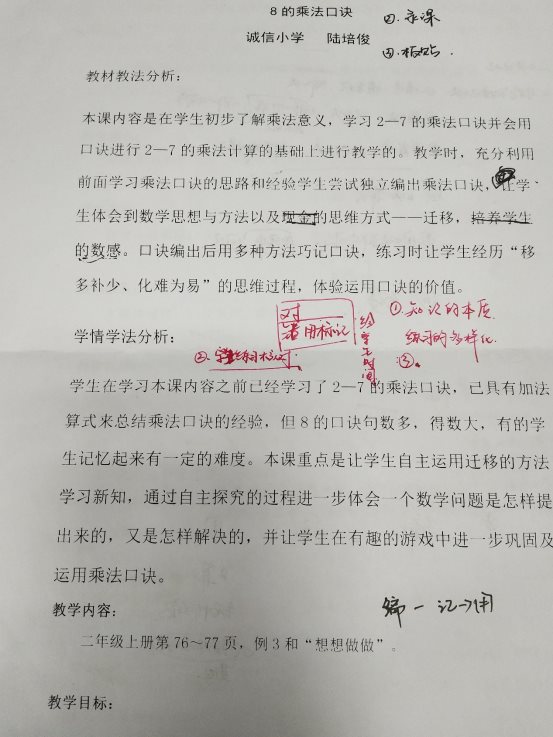 8 的乘法口诀
④. 录课
诚信小学 陆培俊
④.板贴.
教材教法分析：
本课内容是在学生初步了解乘法意义，学习 2—7 的乘法口诀并会用
口诀进行 2—7 的乘法计算的基础上进行教学的。教学时，充分利用
前面学习乘法口诀的思路和经验学生尝试独立编出乘法口诀，让学
生体会到数学思想与方法以及现金的思维方式——迁移，培养学生
的数感。口诀编出后用多种方法巧记口诀，练习时让学生经历“移
多补少、化难为易”的思维过程，体验运用口诀的价值。
对
用标记
①.知识的本质
练习的多样化.
学情学法分析：
②.
③.
学生在学习本课内容之前已经学习了 2—7 的乘法口诀，已具有加法
算式来总结乘法口诀的经验，但 8 的口诀句数多，得数大，有的学
生记忆起来有一定的难度。本课重点是让学生自主运用迁移的方法
学习新知，通过自主探究的过程进一步体会一个数学问题是怎样提
出来的，又是怎样解决的，并让学生在有趣的游戏中进一步巩固及
运用乘法口诀。
教学内容：
编一记→用
二年级上册第 76～77 页，例 3 和“想想做做”。
教学目标：